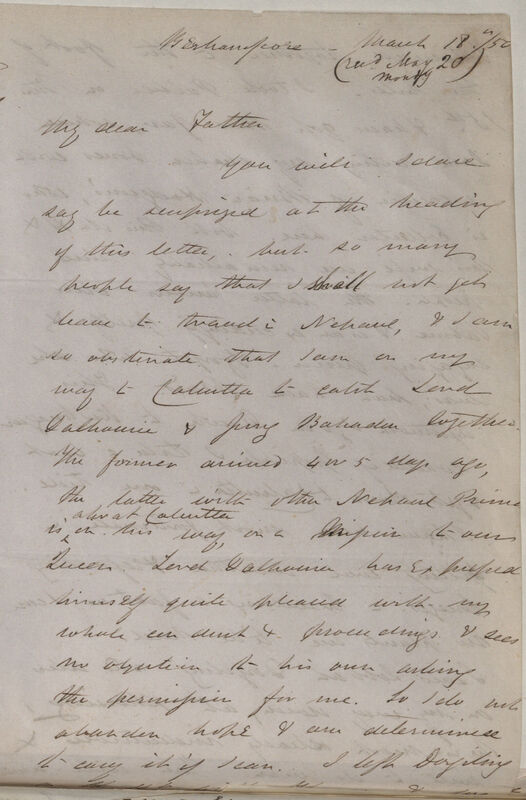 Berhampore - March 18th/50
(recd May 20
Monday)
My dear Father
You will I dare
say be surprized at the heading
of this letter, but so many
people say that I shall not get
leave to travel i Nepaul, & I am
so obstinate that I am on my
way to Calcutta to catch Lord
Dalhousie & Jung Bahadur together.
The former arrived 4 or 5 days ago,
the latter with other Nepaul Princes
is about Calcutta on his way, on a Mission to our
Queen. Lord Dalhousie has expressed
himself quite pleased with my
whole conduct & proceedings & sees
no objection to his own asking
the permission for me. So I do not
abandon hope & am determined
to carry it if I can. I left Dorjiling